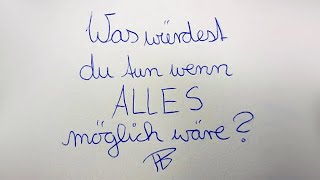 Was würdest
du tun wenn
ALLES
möglich wäre?